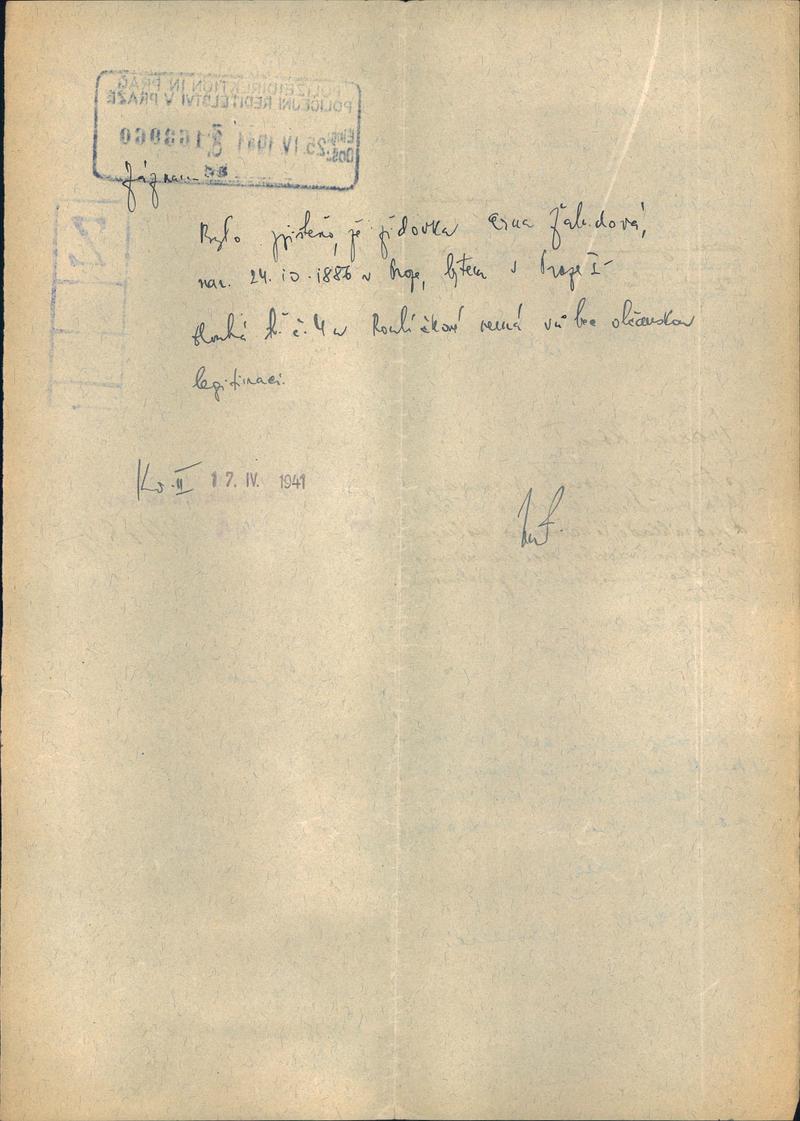 POLIZEIDIREKTION IN PRAG
POLICEJNÍ ŘEDITELSTVÍ V PRAZE
Eing.
Došl. 25. IV 1941 163960
Záznam
Bylo zjištěno, že židovka Erna Žaludová,
nar. 24.10.1886 v Praze, bytem v Praze I-
Dlouhá tř. č. 4 u Roubíčkové nemá vůbec občanskou
legitimaci.
17. IV. 1941